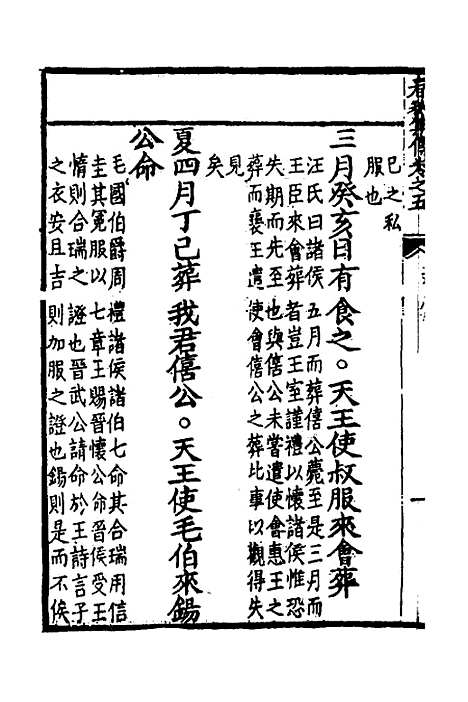 春秋集傳卷之五
己之私
服也
三月癸亥日有食之。天王使叔服來會葬
汪氏曰諸侯五月而葬僖公薨至是三月而
王臣來會葬者豈王室謹禮以懷諸侯惟恐
失期而先至也與僖公未嘗遣使會惠王之
葬而襄王遣使會僖公之葬比事以觀得失
見
矣
夏四月丁巳葬我君僖公。天王使毛伯來錫
公命
毛國伯爵周禮諸侯諸伯七命其合瑞用信
圭其冕服以七章王賜晉懷公命晉侯受王
惰則合瑞之證也晉武公請命於王詩言子
之衣安且吉則加服之證也錫則是而不俟